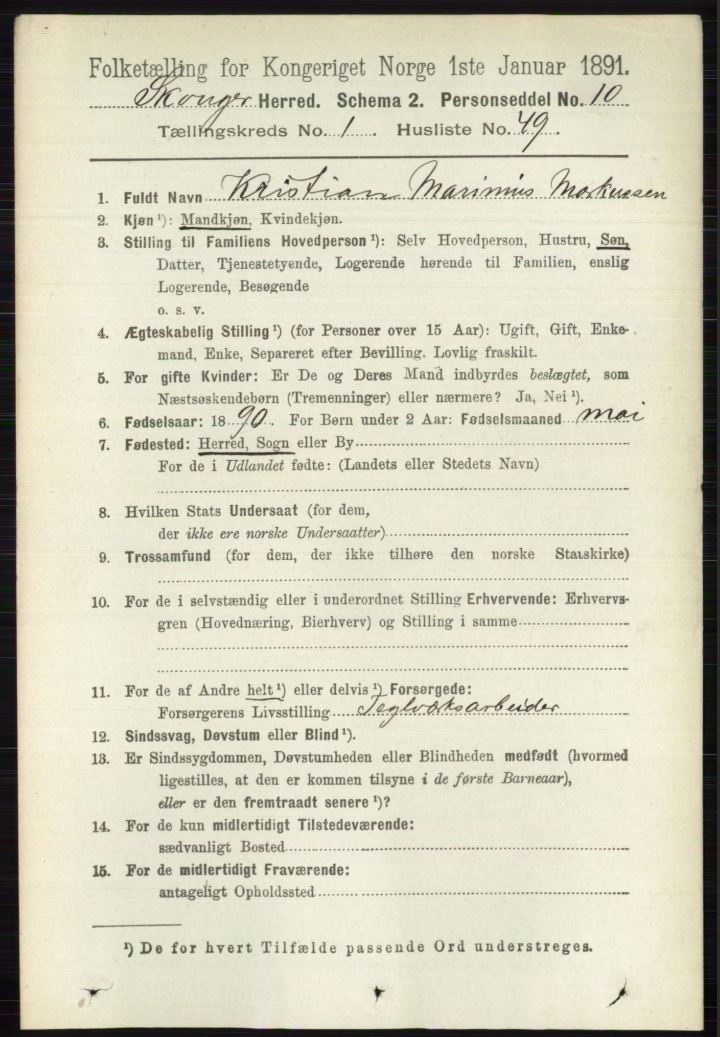 Folketælling for Kongeriget Norge 1ste Januar 1891.
Skouger Herred. Schema 2. Personseddel No. 10
Tællingskreds No. 1. Husliste No. 49.
1. Fuldt Navn Kristian Marinius Markussen
2. Kjøn ¹): Mandkjøn, Kvindekjøn.
3. Stilling til Familiens Hovedperson ¹): Selv Hovedperson, Hustru, Søn,
Datter, Tjenestetyende, Logerende hørende til Familien, enslig
Logerende, Besøgende
o. s. v.
4. Ægteskabelig Stilling ¹) (for Personer over 15 Aar): Ugift, Gift, Enke-
mand, Enke, Separeret efter Bevilling, Lovlig fraskilt.
5. For gifte Kvinder: Er De og Deres Mand indbyrdes beslægtet, som
Næstsøskendebørn (Tremenninger) eller nærmere? Ja, Nei ¹).
6. Fødselsaar: 1890. For Børn under 2 Aar: Fødselsmaaned mai
7. Fødested: Herred, Sogn eller By
For de i Udlandet fødte: (Landets eller Stedets Navn)
8. Hvilken Stats Undersaat (for dem,
der ikke ere norske Undersaatter)
9. Trossamfund (for dem, der ikke tilhøre den norske Statskirke)
10. For de i selvstændig eller i underordnet Stilling Erhvervende: Erhvervs-
gren (Hovednæring, Bierhverv) og Stilling i samme
11. For de af Andre helt ¹) eller delvis ¹) Forsørgede:
Forsørgerens Livsstilling Teglværksarbeider
12. Sindssvag, Døvstum eller Blind ¹).
13. Er Sindssygdommen, Døvstumheden eller Blindheden medfødt (hvormed
ligestilles, at den er kommen tilsyne i de første Barneaar),
eller er den fremtraadt senere ¹)?
14. For de kun midlertidigt Tilstedeværende:
sædvanligt Bosted
15. For de midlertidigt Fraværende:
antageligt Opholdssted
¹) De for hvert Tilfælde passende Ord understreges.